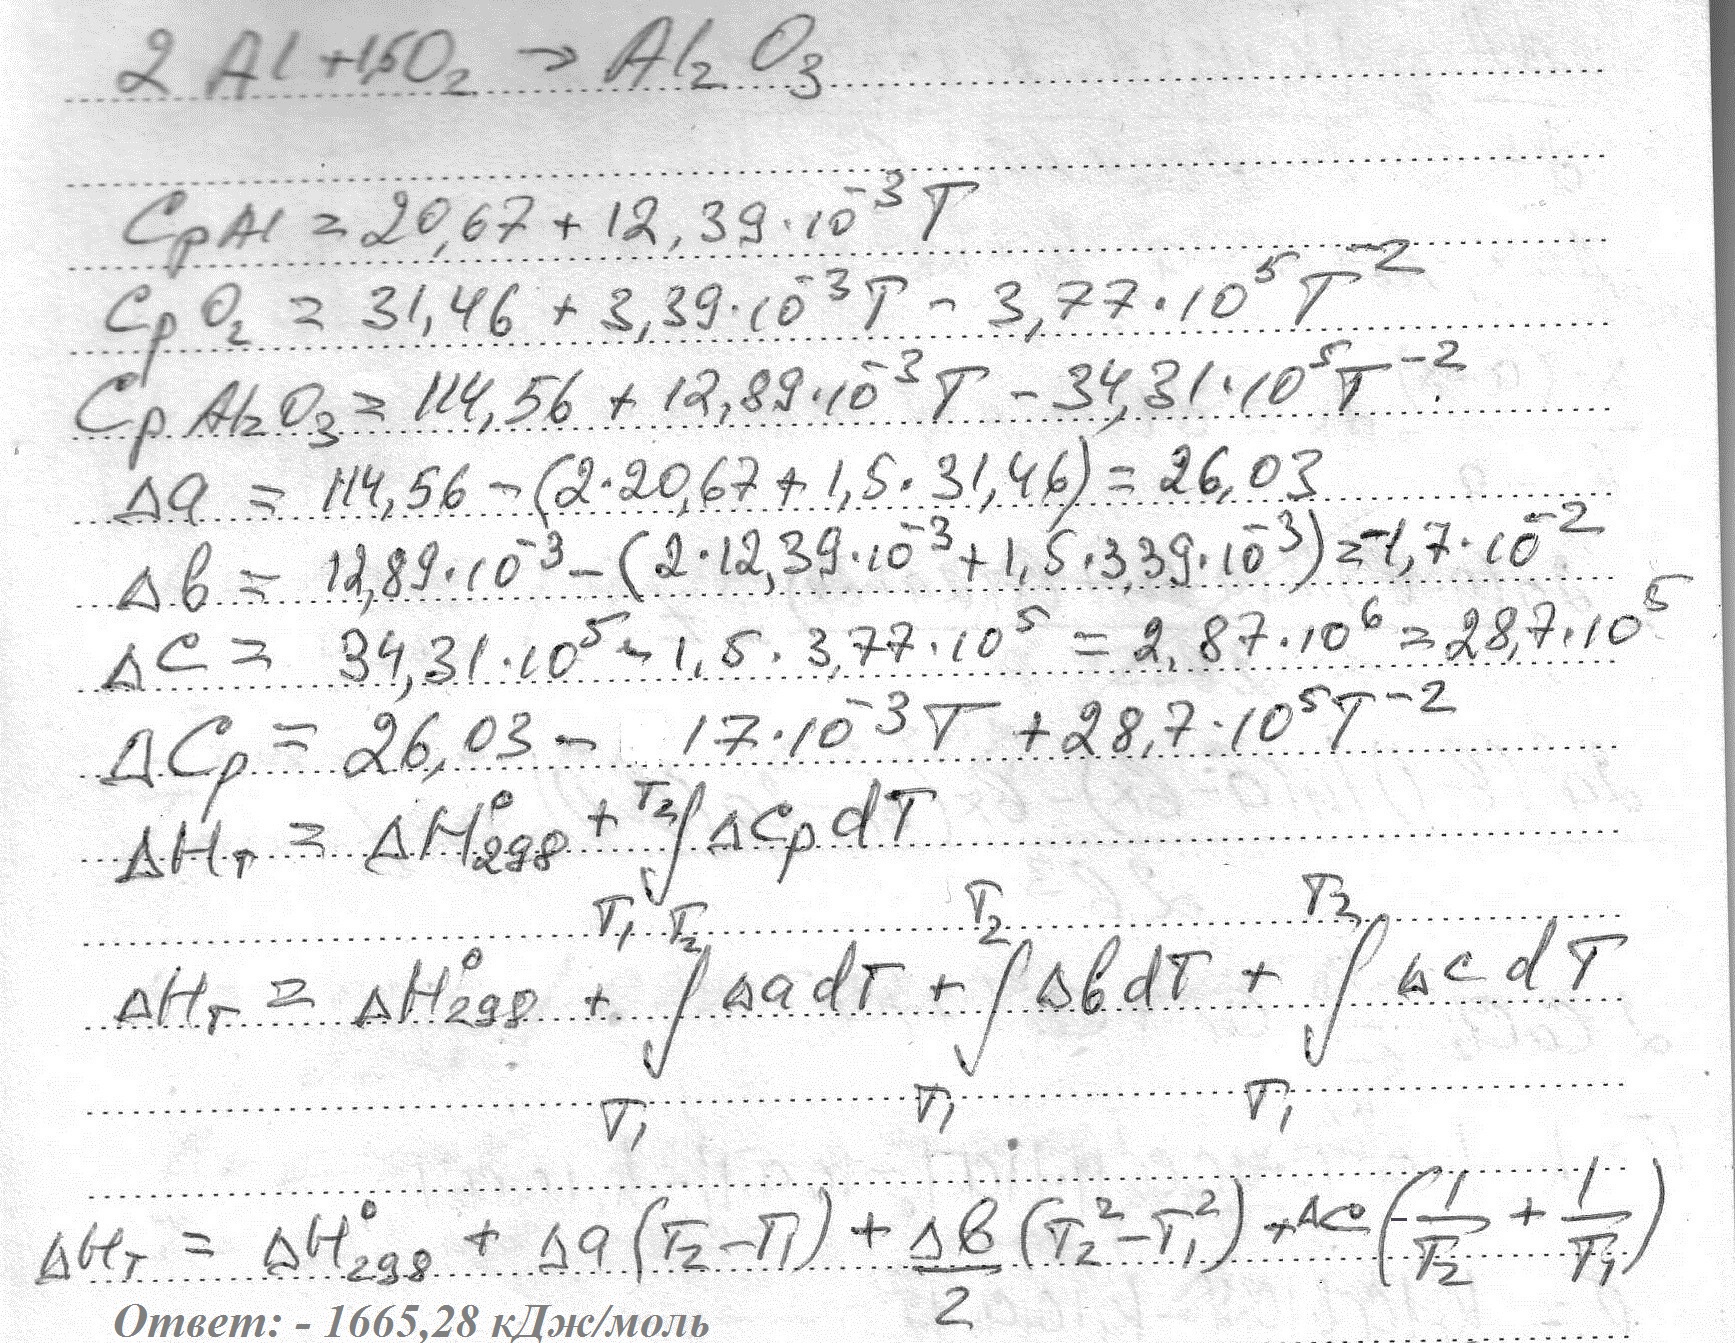 2 Al + 1,5O₂ → Al₂O₃
Cp Al = 20,67 + 12,39·10⁻³T
Cp O₂ = 31,46 + 3,39·10⁻³T - 3,77·10⁵T⁻²
Cp Al₂O₃ = 114,56 + 12,89·10⁻³T - 34,31·10⁵T⁻²
Δa = 114,56 - (2·20,67 + 1,5·31,46) = 26,03
Δb = 12,89·10⁻³ - (2·12,39·10⁻³ + 1,5·3,39·10⁻³) = -1,7·10⁻²
Δc = 34,31·10⁵ - 1,5·3,77·10⁵ = 2,87·10⁶ = 28,7·10⁵
ΔCp = 26,03 - 17·10⁻³T + 28,7·10⁵T⁻²
ΔH_T = ΔH°₂₉₈ + ∫_{T₁}^{T₂} ΔCp dT
ΔH_T = ΔH°₂₉₈ + ∫_{T₁}^{T₂} Δa dT + ∫_{T₁}^{T₂} Δb dT + ∫_{T₁}^{T₂} Δc dT
ΔH_T = ΔH°₂₉₈ + Δa (T₂ - T₁) + Δb/2 (T₂² - T₁²) + Δc (-1/T₂ + 1/T₁)
Ответ: - 1665,28 кДж/моль